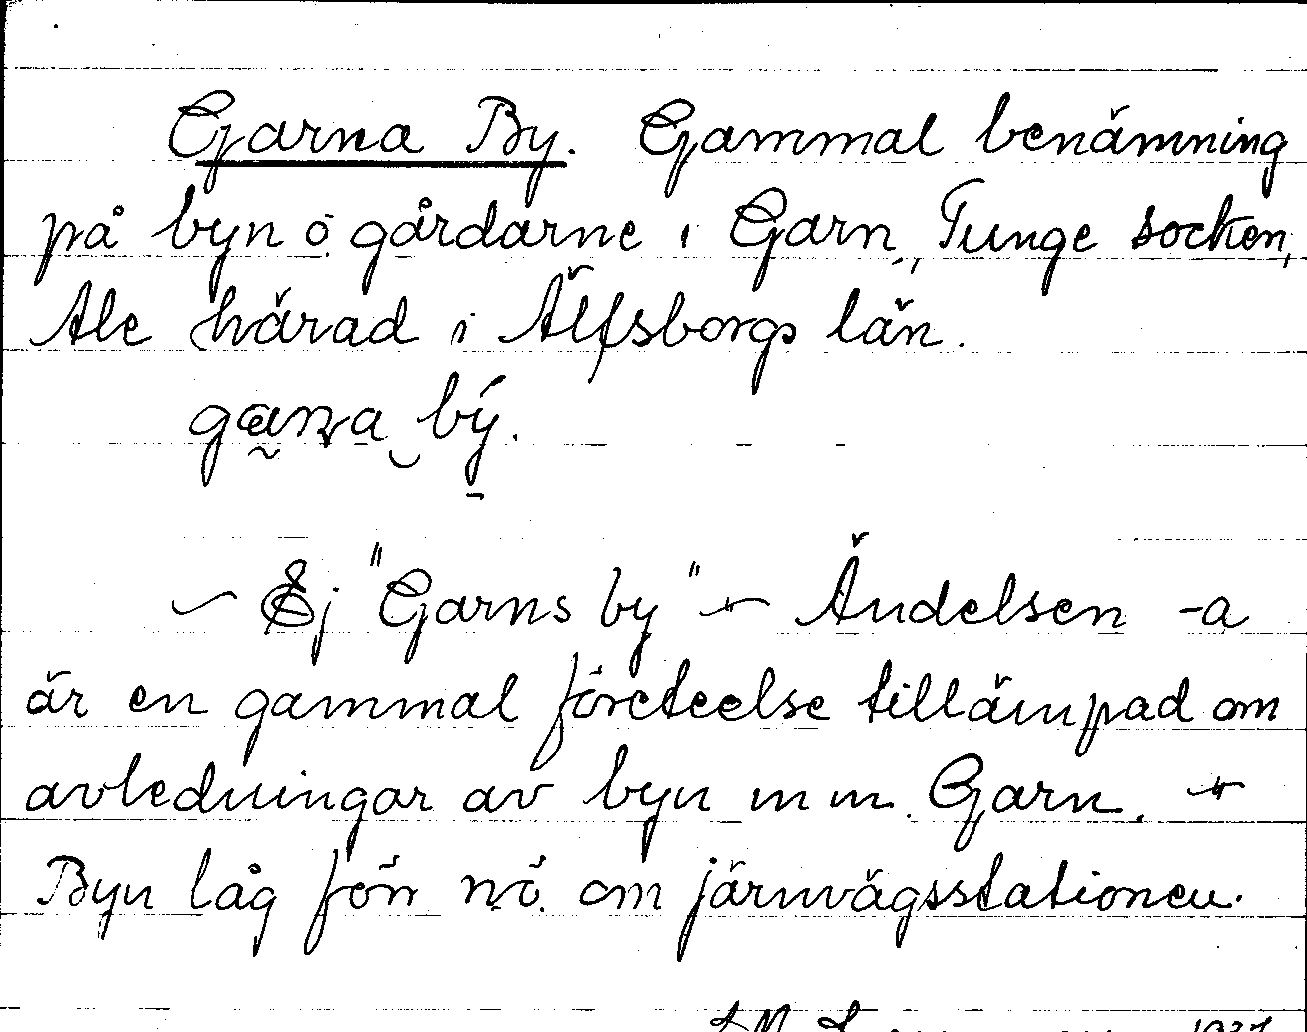 Garna By. Gammal benämning
på byn o. gårdarne i Garn, Tunge socken,
Ale härad i Älfsborgs län.
gaɳa by.
– Ej "Garns by" – Ändelsen -a
är en gammal företeelse tillämpad om
avledningar av byn m m. Garn. –
Byn låg förr nö. om järnvägsstationen.